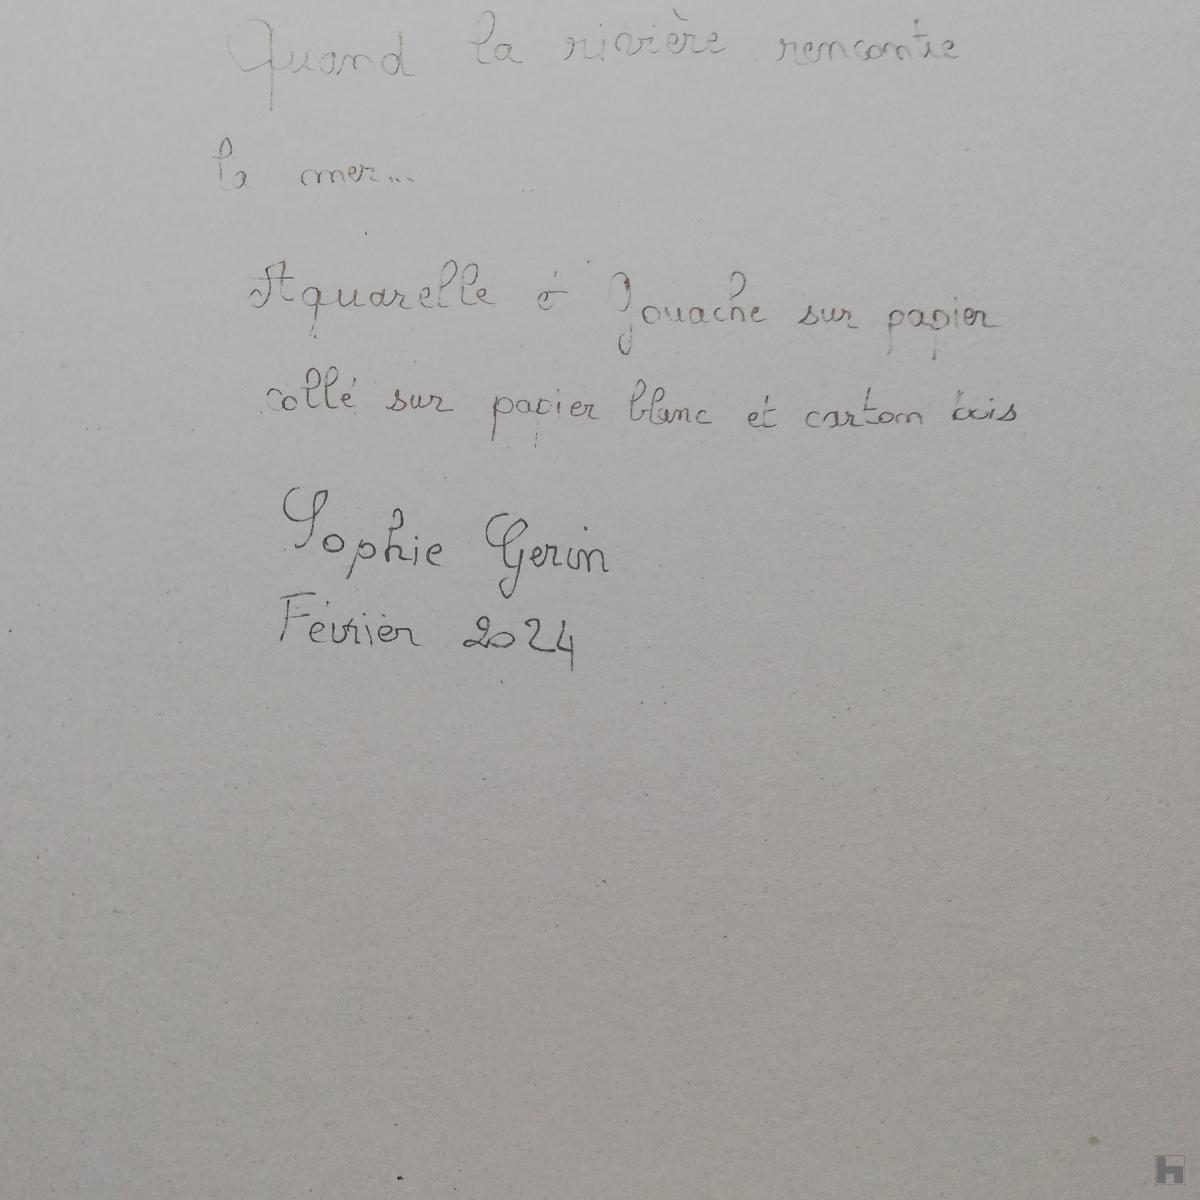 Quand la rivière rencontre
la mer...
Aquarelle et Gouache sur papier
collé sur papier blanc et carton bois
Sophie Gerin
Février 2024